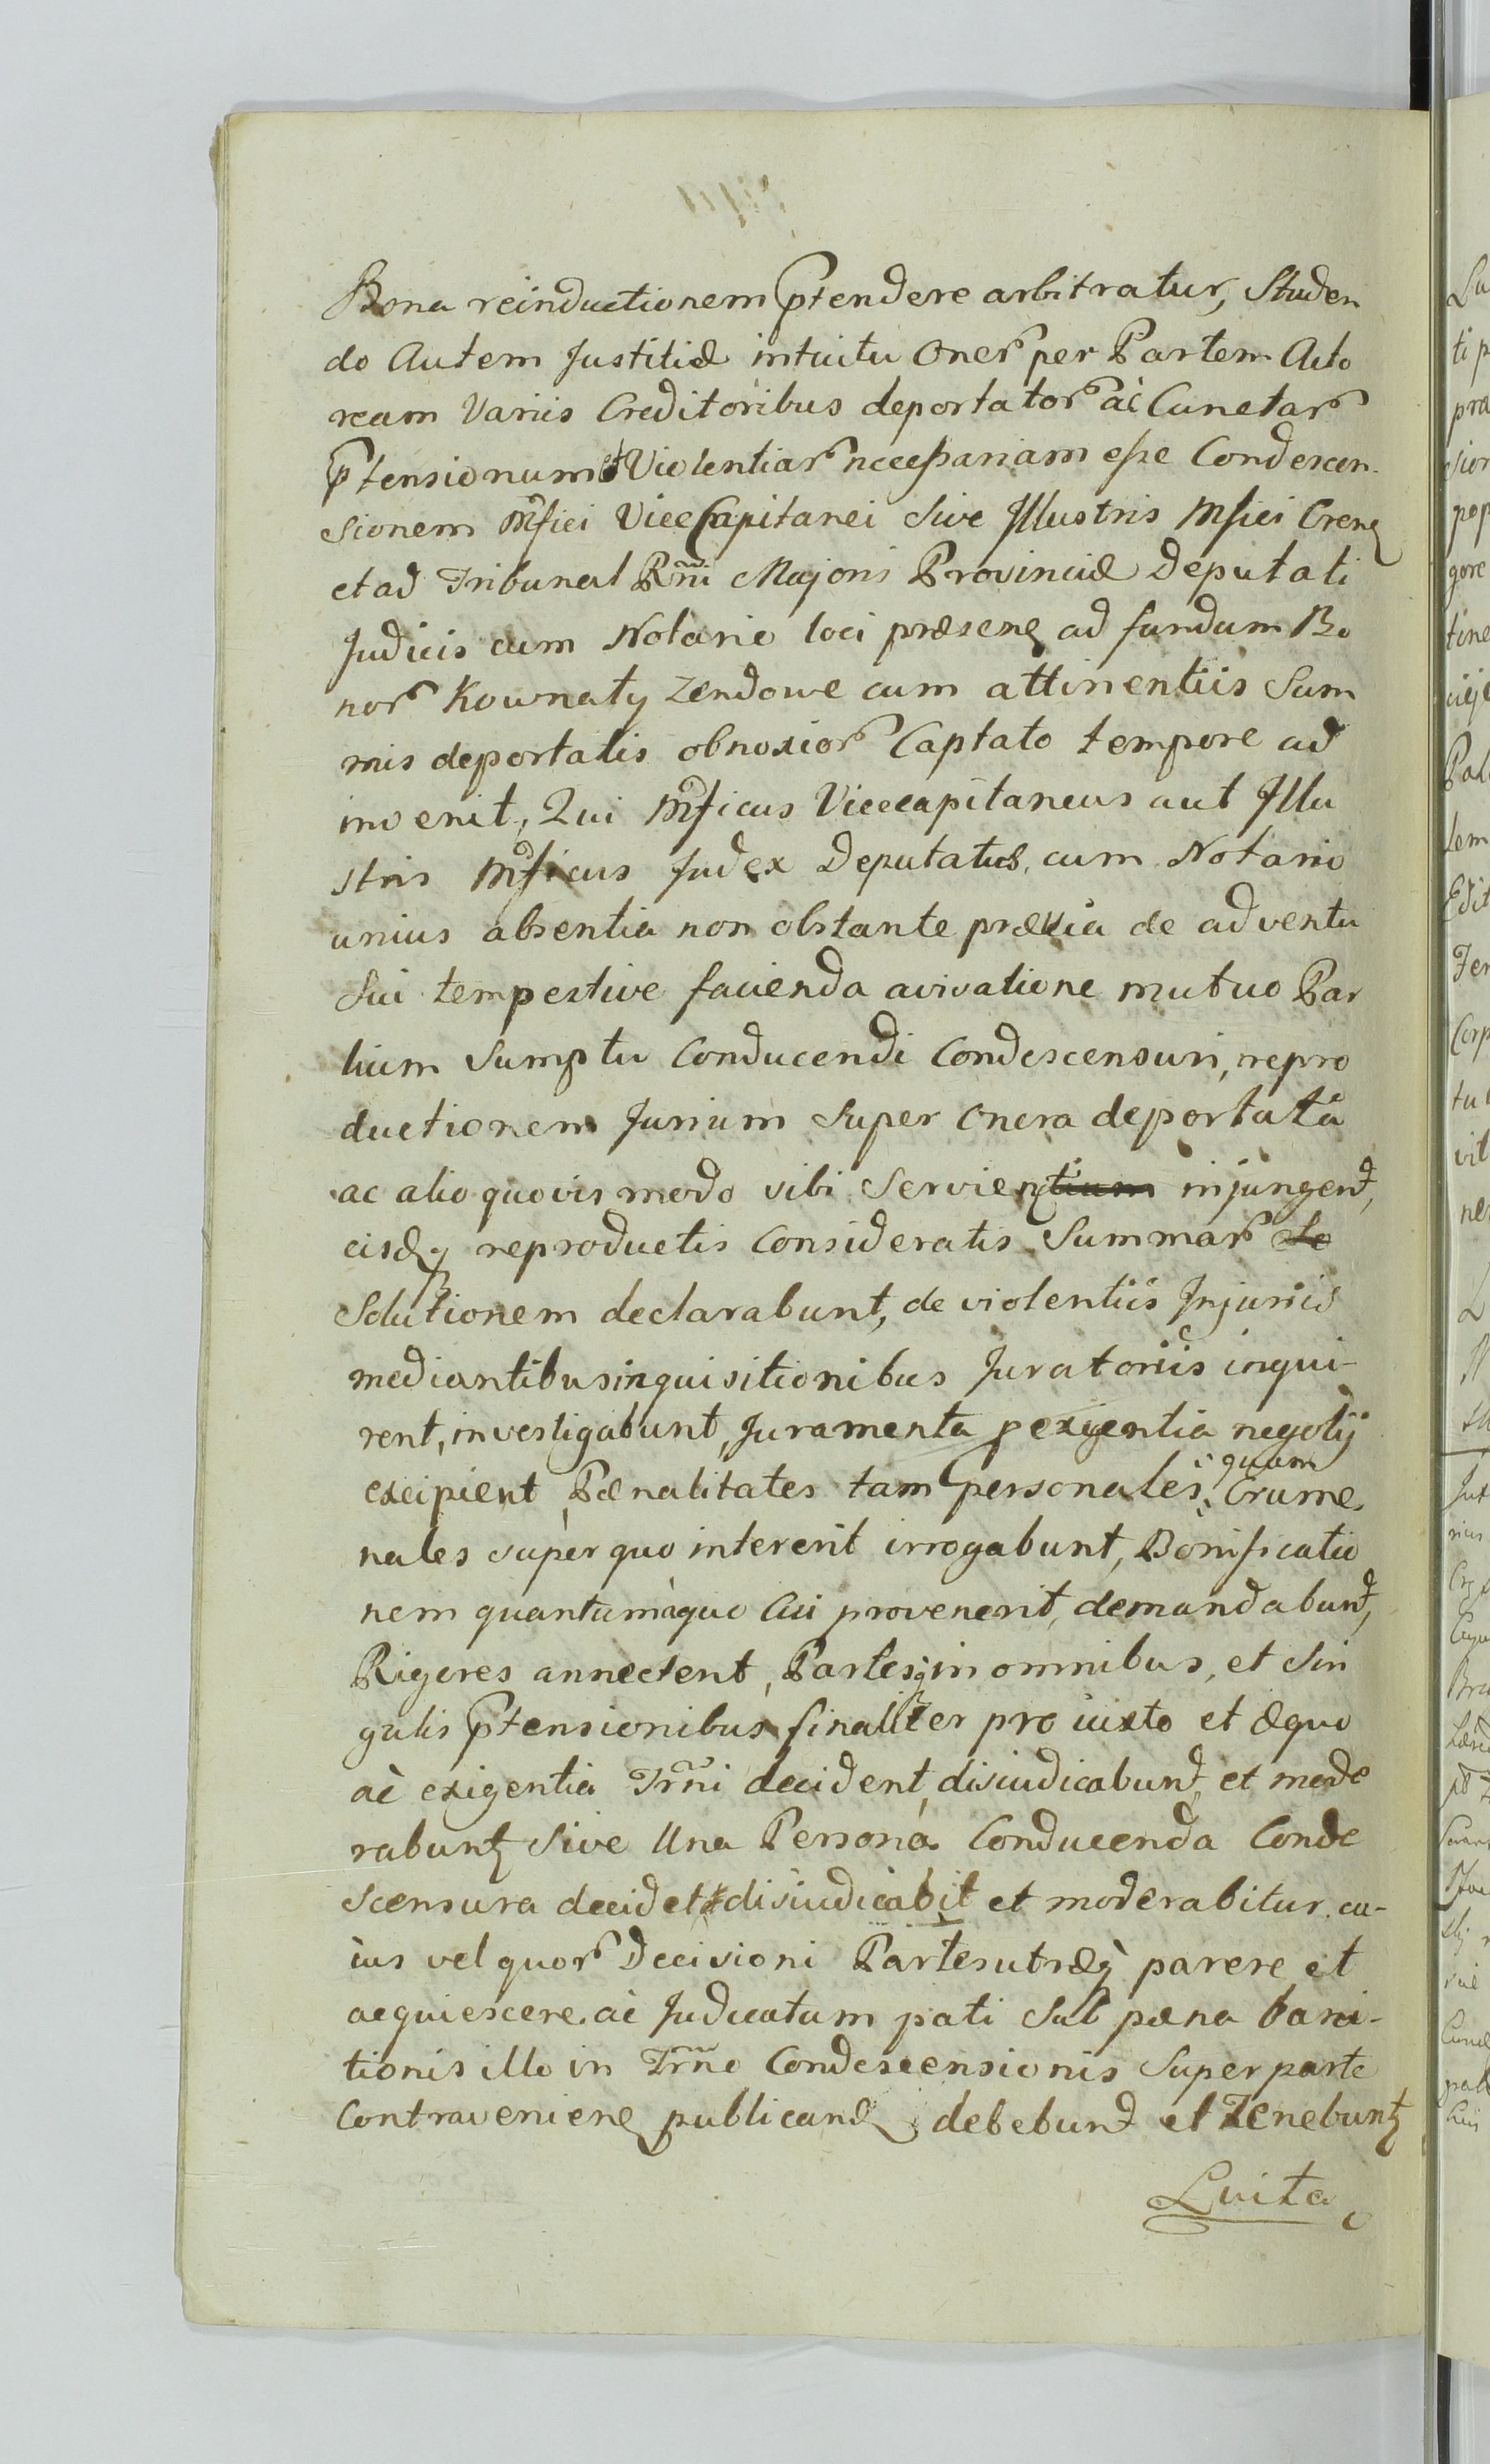 Bona reinductionem Ptendere arbitratur, Studen
do Autem Justitiæ intuitu Oner͂ per Partem Acto
ream Variis Creditoribus deportator͂ ac Cunctar͂
Ptensionum et Violentiar͂ necessariam esse Condescen-
sionem Mfici ViceCapitanei Sive Illustris Mfici Gren̄
et ad Tribunal Rñi Majoris Provinciæ Deputati
Judicis cum Notario loci præsen̄ ad fundum Bo
nor͂ Kownaty Zendowe cum attinentiis Sum
mis deportatis obnoxior͂ Captato tempore ad
invenit, Qui Mficus Vicecapitaneus aut Illu
stris Mficus Judex Deputatus cum Notario
unius absentia non obstante prævia de adventu
Sui tempestive facienda avisatione mutuo Par
tium Sumptu Conducendi Condescensuri, repro
ductionem Jurium Super Onera deportata
ac alio quovis modo sibi Servien̄ injungent,
eisdq reproductis Consideratis Summar͂
Solutionem declarabunt, de violentiis Injuriis
mediantibus inquisitionibus Juratoriis inqui-
rent, investigabunt, Juramenta p exigentia negotij
excipient, Pænalitates tam personales quam Crume
nales super quo intererit irrogabunt, Bonificatio
nem quantum a quo Cui provenerit, demandabunt,
Rigores annectent, Partesq in omnibus, et Sin
gulis Ptensionibus finaliter pro iuxto et æquo
ac exigentia Trñi decident, disiudicabunt, et mode
rabunt͂ Sive Una Persona Conducenda Conde
scensura decidet disiudicabit et moderabitur. cu-
ius vel quor͂ Decisioni Partes utræq parere et
acquiescere. ac Judicatum pati Sub pæna bani-
tionis illo in Trñe Condescensionis Super parte
Contravenien̄ publican̄ debebunt et Tenebunt͂
Luita